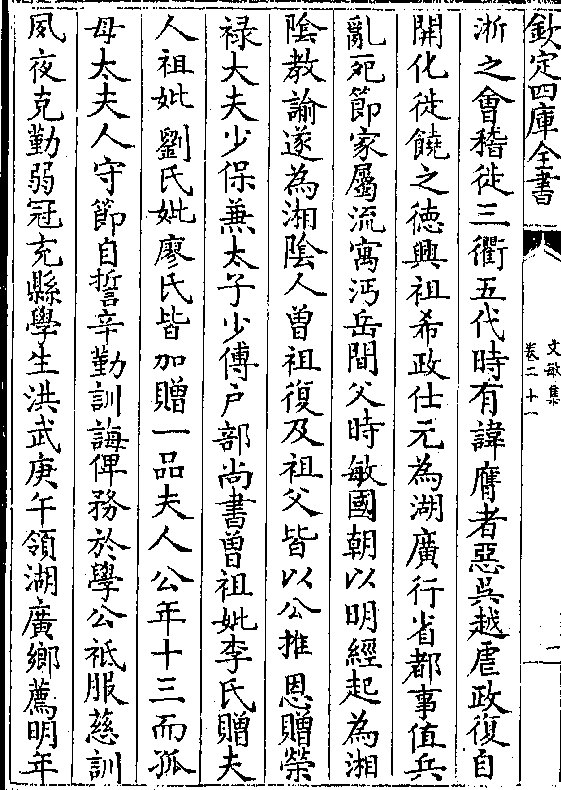 欽定四庫全書
文敏集
卷二十一
二
淅之會稽徙三衢五代時有諱膺者惡吳越虐政復自
開化徙饒之德興祖希政仕元為湖廣行省都事值兵
亂死節家屬流寓沔岳間父時敏國朝以明經起為湘
隂教諭遂為湘隂人曽祖復及祖父皆以公推恩贈榮
禄大夫少保兼太子少傅户部尚書曽祖妣李氏贈夫
人祖妣劉氏妣廖氏皆加贈一品夫人公年十三而孤
母太夫人守節自誓辛勤訓誨俾務於學公祗服慈訓
夙夜克勤弱冠充縣學生洪武庚午領湖廣鄉薦明年